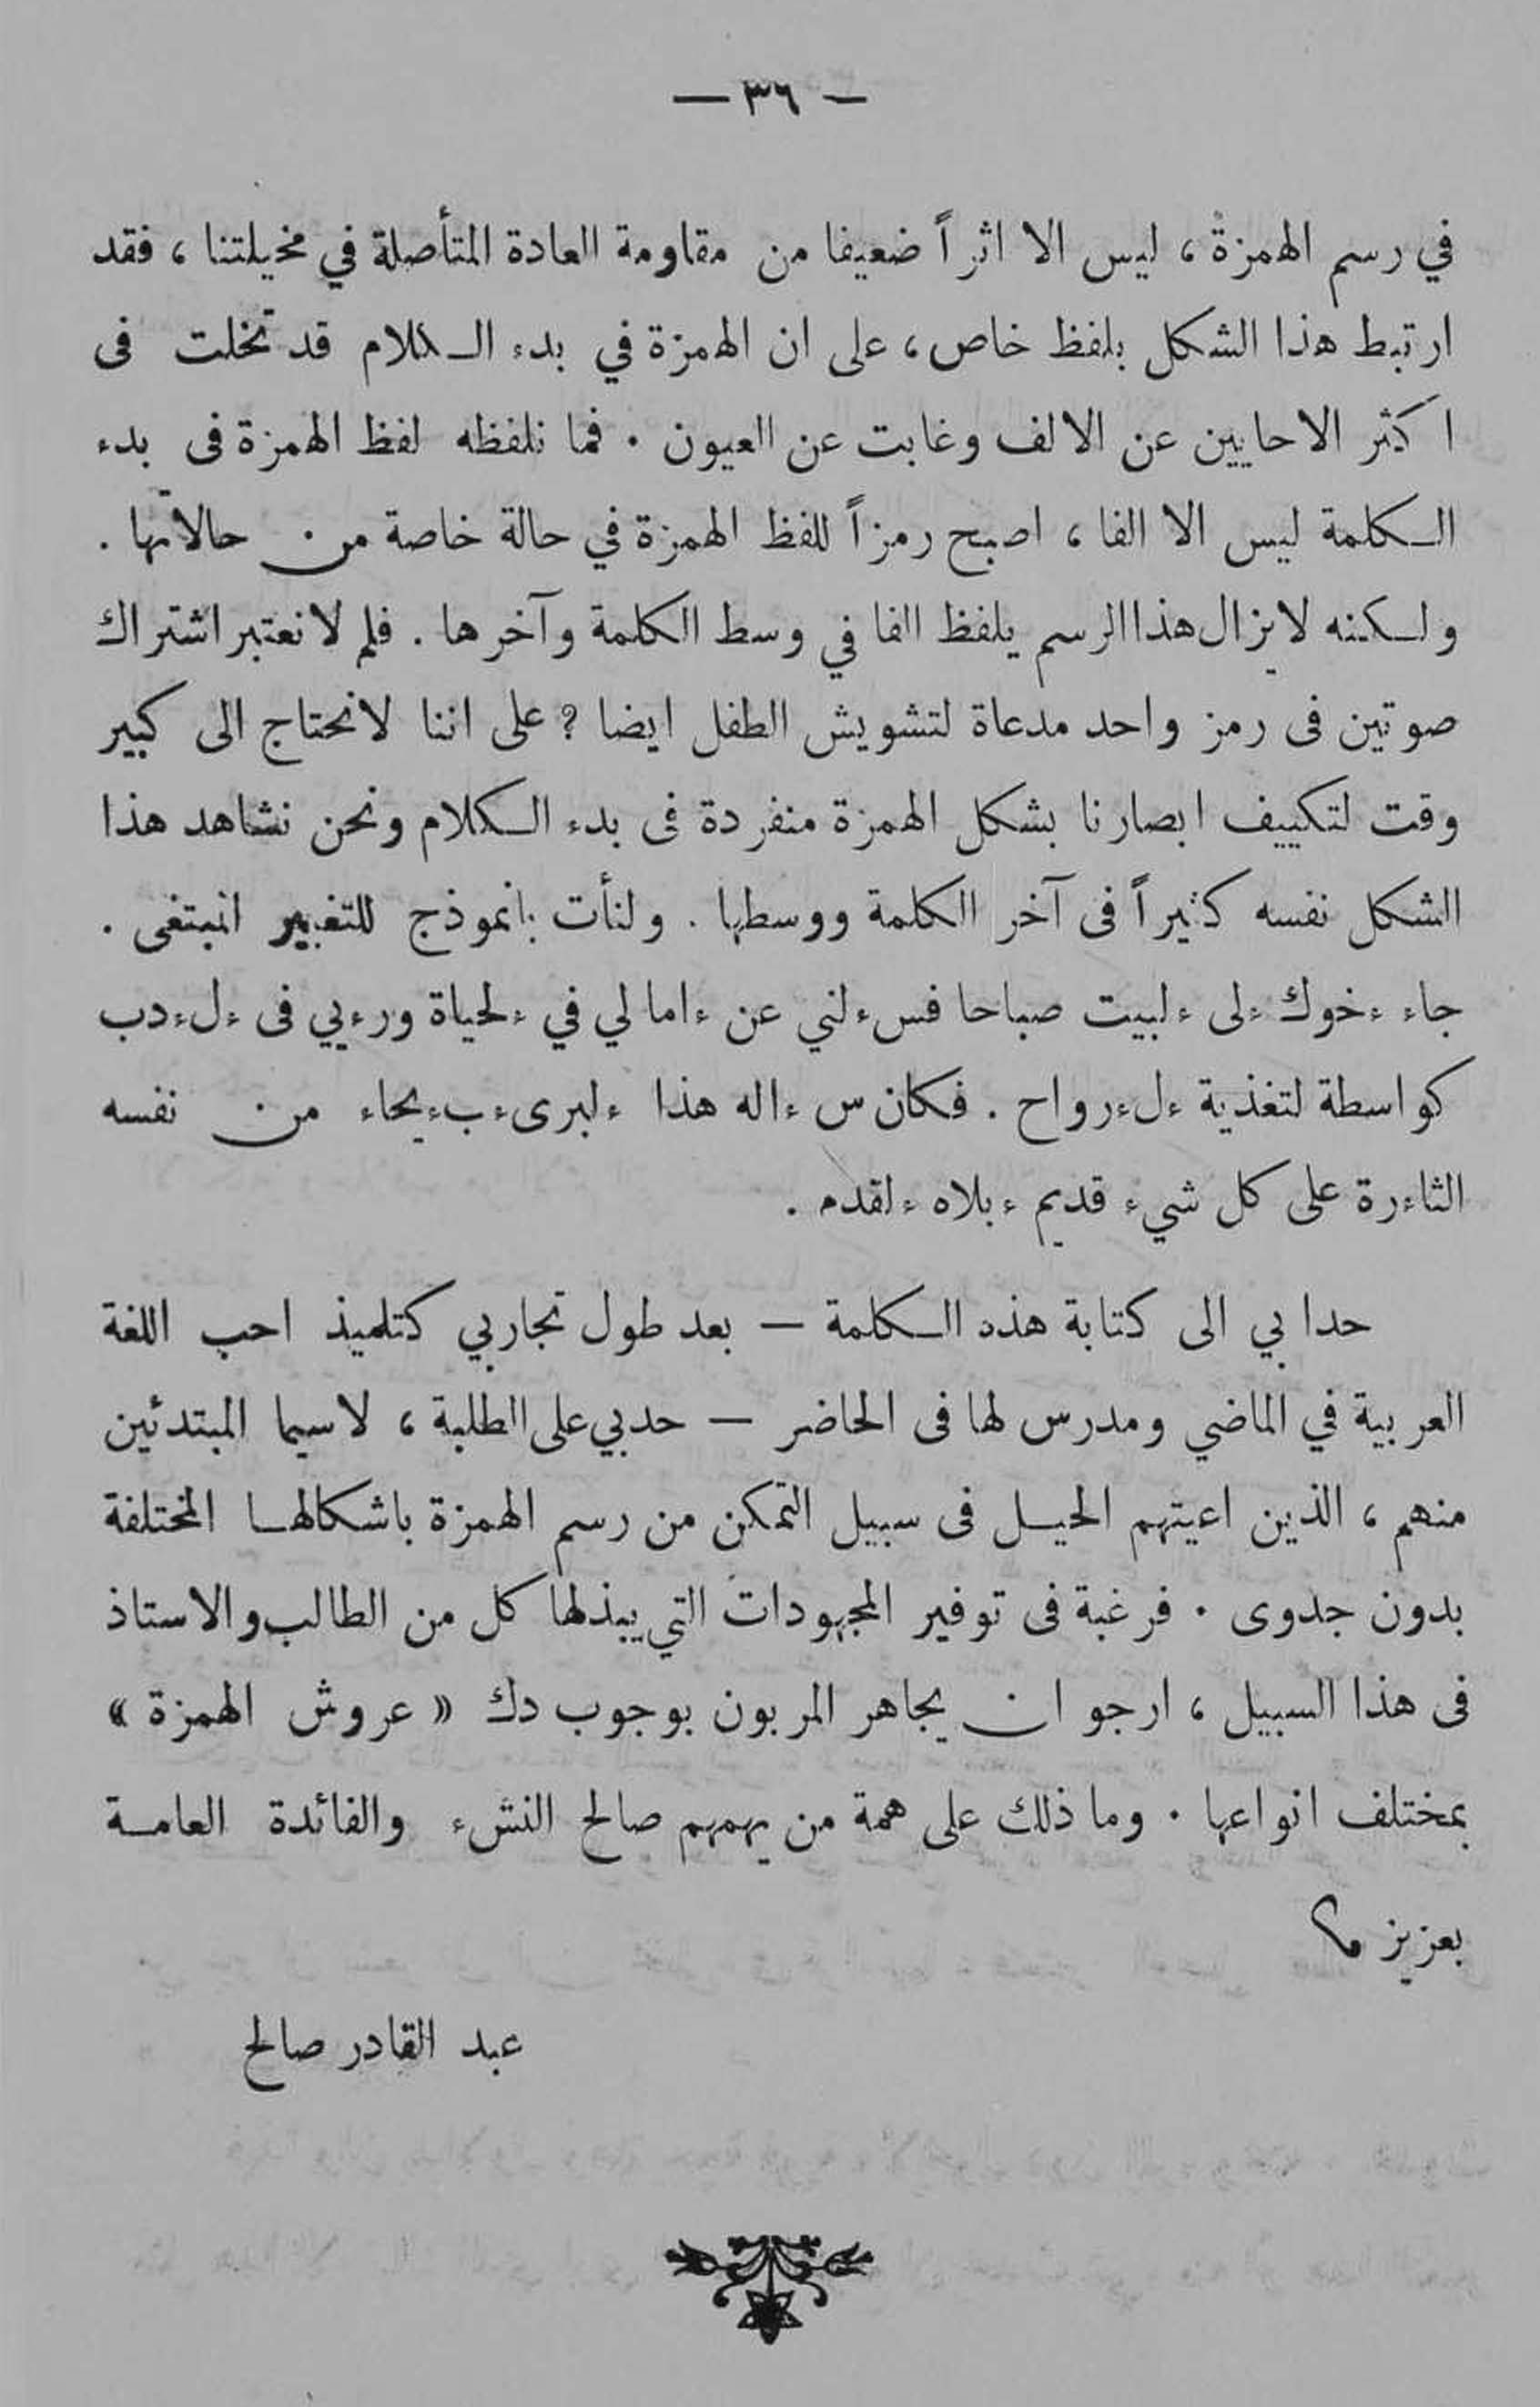 — ٣٦ —
في رسم الهمزة ، ليس الا اثراً ضعيفا من مقاومة العادة المتأصلة في مخيلتنا ، فقد
ارتبط هذا الشكل بلفظ خاص ، على ان الهمزة في بدء الكلام قد تخلت فى
اكثر الاحايين عن الالف وغابت عن العيون . فما نلفظه لفظ الهمزة فى بدء
الكلمة ليس الا الفا ، اصبح رمزاً للفظ الهمزة في حالة خاصة من حالاتها .
ولكنه لايزال هذا الرسم يلفظ الفا في وسط الكلمة وآخرها . فلم لا نعتبر اشتراك
صوتين فى رمز واحد مدعاة لتشويش الطفل ايضا ؟ على اننا لانحتاج الى كبير
وقت لتكييف ابصارنا بشكل الهمزة منفردة فى بدء الكلام ونحن نشاهد هذا
الشكل نفسه كثيراً فى آخر الكلمة ووسطها . ولنأت بانموذج للتغيير المبتغى .
جاء ءخوك ءلى ءلبيت صباحا فسءلني عن ءامالي في ءلحياة ورءيي فى ءلءدب
كواسطة لتغذية ءلءرواح . فكان سءاله هذا ءلبرىء بءيحاء من نفسه
الثاءرة على كل شيء قديم ءبلاه ءلقدم .
حدا بي الى كتابة هذه الكلمة — بعد طول تجاربي كتلميذ احب اللغة
العربية في الماضي ومدرس لها فى الحاضر — حدبي على الطلبة ، لاسيما المبتدئين
منهم ، الذين اعيتهم الحيل فى سبيل التمكن من رسم الهمزة باشكالها المختلفة
بدون جدوى . فرغبة فى توفير المجهودات التي يبذلها كل من الطالب والاستاذ
فى هذا السبيل ، ارجو ان يجاهر المربون بوجوب دك « عروش الهمزة »
بمختلف انواعها . وما ذلك على همة من يهمهم صالح النشء والفائدة العامة
بعزيز
عبد القادر صالح